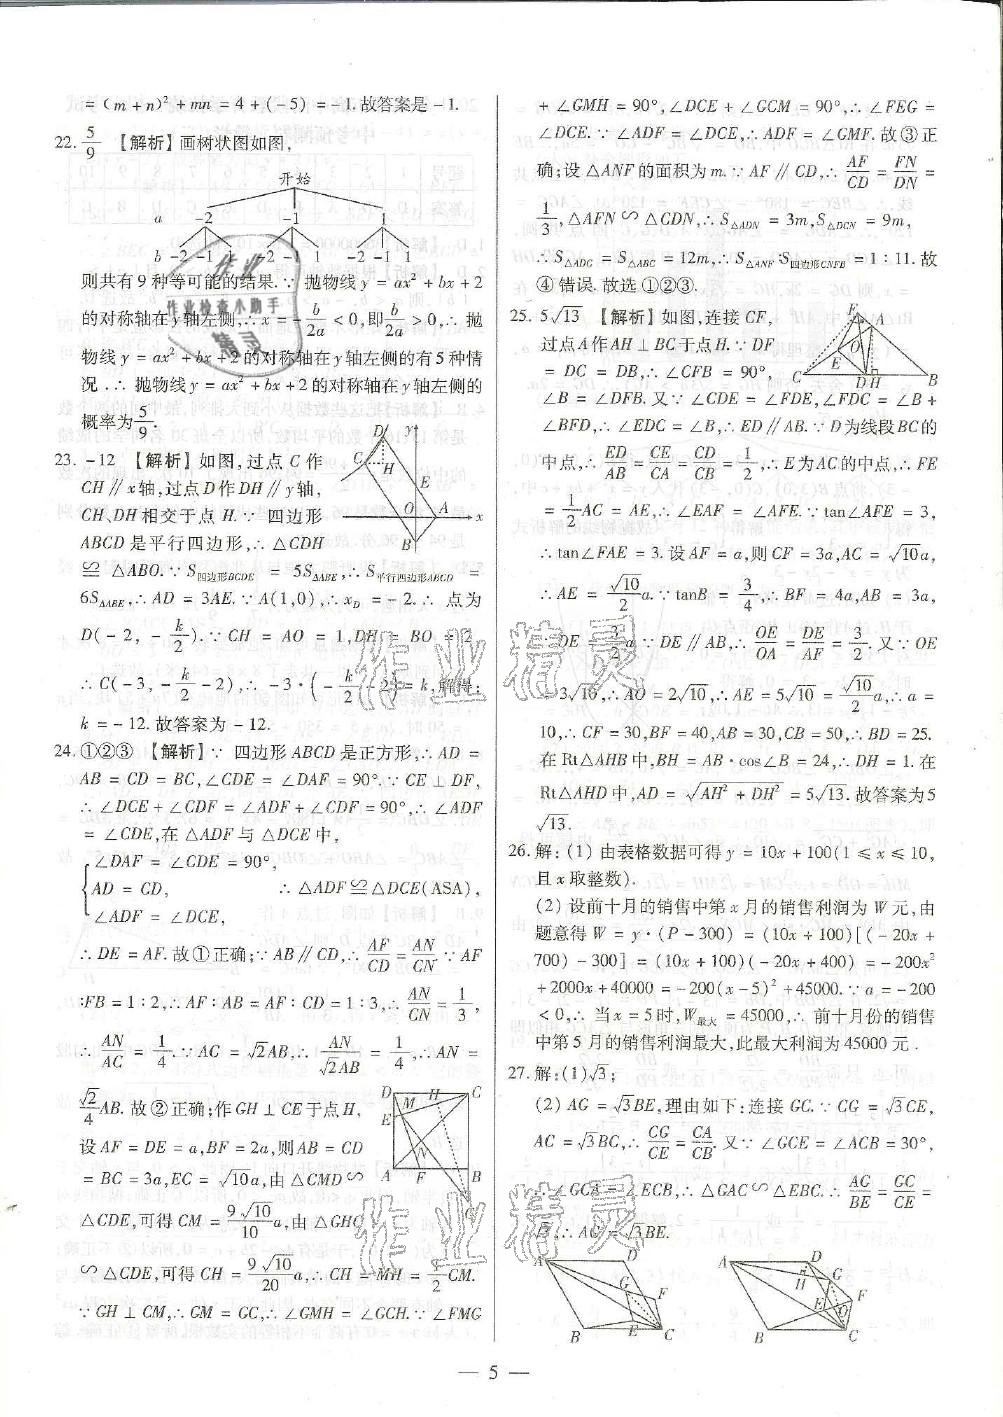 = (m + n)² + mn = 4 + (-5) = -1. 故答案是 -1.
22. 5/9 【解析】画树状图如图,
开始
a -2 -1 1
b -2 -1 1 -2 -1 1 -2 -1 1
则共有9种等可能的结果.∵ 抛物线 y = ax² + bx + 2
的对称轴在 y 轴左侧,∴ x = -b/2a < 0,即 b/2a > 0,∴ 抛
物线 y = ax² + bx + 2 的对称轴在 y 轴左侧的有5种情
况.∴ 抛物线 y = ax² + bx + 2 的对称轴在 y 轴左侧的
概率为 5/9.
23. -12 【解析】如图,过点 C 作
CH∥x轴,过点D作DH∥y轴,
CH、DH相交于点 H.∵ 四边形
ABCD 是平行四边形,∴ △CDH
≌ △ABO.∵ S四边形BCDE = 5S△ABE,∴ S平行四边形ABCD =
6S△ABE,∴ AD = 3AE.∵ A(1,0),∴ x_D = -2.∴ 点为
D(-2, -k/2).∵ CH = AO = 1,DH = BO = 2
∴ C(-3, -k/2 -2),∴ -3·(-k/2 -2) = k,解得:
k = -12. 故答案为 -12.
24. ①②③ 【解析】∵ 四边形 ABCD 是正方形,∴ AD =
AB = CD = BC,∠CDE = ∠DAF = 90°.∵ CE ⊥ DF,
∴ ∠DCE + ∠CDF = ∠ADF + ∠CDF = 90°,∴ ∠ADF
= ∠CDE,在 △ADF 与 △DCE 中,
∠DAF = ∠CDE = 90°,
AD = CD, ∴ △ADF≌△DCE(ASA),
∠ADF = ∠DCE,
∴ DE = AF. 故①正确;∵ AB∥CD,∴ AF/CD = AN/CN ∵ AF
:FB = 1:2,∴ AF:AB = AF:CD = 1:3,∴ AN/CN = 1/3,
∴ AN/AC = 1/4.∵ AC = √2AB,∴ AN/√2AB = 1/4,∴ AN =
√2/4 AB. 故②正确;作 GH ⊥ CE 于点 H,
设 AF = DE = a,BF = 2a,则 AB = CD
= BC = 3a,EC = √10a,由 △CMD ∽
△CDE,可得 CM = 9√10/10 a,由 △GHC
∽ △CDE,可得 CH = 9√10/20 a,∴ CH = MH = 1/2 CM.
∵ GH ⊥ CM,∴ GM = GC,∴ ∠GMH = ∠GCH.∵ ∠FMG
D H C
M
E
N
A F B
G
+ ∠GMH = 90°,∠DCE + ∠GCM = 90°,∴ ∠FEG =
∠DCE.∵ ∠ADF = ∠DCE,∴ ADF = ∠GMF. 故③正
确;设 △ANF 的面积为 m.∵ AF∥CD,∴ AF/CD = FN/DN =
1/3,△AFN ∽ △CDN,∴ S△ADN = 3m,S△DCN = 9m,
∴ S△ADC = S△ABC = 12m,∴ S△ANF:S四边形CNFB = 1:11. 故
④ 错误. 故选①②③.
25. 5√13 【解析】如图,连接 CF,
过点A作AH ⊥ BC于点H.∵ DF
= DC = DB,∴ ∠CFB = 90°,
∠B = ∠DFB. 又∵ ∠CDE = ∠FDE,∠FDC = ∠B +
∠BFD,∴ ∠EDC = ∠B,∴ ED∥AB.∵ D为线段BC的
中点,∴ ED/AB = CE/CA = CD/CB = 1/2,∴ E为AC的中点,∴ FE
= 1/2 AC = AE,∴ ∠EAF = ∠AFE.∵ tan∠AFE = 3,
∴ tan∠FAE = 3. 设 AF = a,则 CF = 3a,AC = √10a,
∴ AE = √10/2 a.∵ tanB = 3/4,∴ BF = 4a,AB = 3a,
DE 3/2 a ∵ DE∥AB,∴ OE/OA = DE/AF = 3/2. 又∵ OE
3√10,∴ AO = 2√10,∴ AE = 5√10 = √10/2 a,∴ a =
10,∴ CF = 30,BF = 40,AB = 30,CB = 50,∴ BD = 25.
在Rt△AHB中,BH = AB·cos∠B = 24,∴ DH = 1. 在
Rt△AHD中,AD = √(AH² + DH²) = 5√13. 故答案为5
√13.
26. 解:(1) 由表格数据可得 y = 10x + 100(1 ≤ x ≤ 10,
且 x 取整数).
(2) 设前十月的销售中第 x 月的销售利润为 W 元,由
题意得 W = y·(P - 300) = (10x + 100)[(-20x +
700) - 300] = (10x + 100)(-20x + 400) = -200x²
+ 2000x + 40000 = -200(x - 5)² + 45000.∵ a = -200
< 0,∴ 当 x = 5 时,W最大 = 45000,∴ 前十月份的销售
中第 5 月的销售利润最大,此最大利润为 45000 元.
27. 解:(1)√3;
(2) AG = √3BE,理由如下:连接 GC.∵ CG = √3CE,
AC = √3BC,∴ CG/CE = CA/CB. 又∵ ∠GCE = ∠ACB = 30°,
∴ ∠GCA = ∠ECB,∴ △GAC ∽ △EBC.∴ AG/BE = GC/CE =
√3,∴ AG = √3BE.
A D G F B E C
A D H G F E O B C
— 5 —
作业检查小助手
精灵
作业精灵
作业精灵